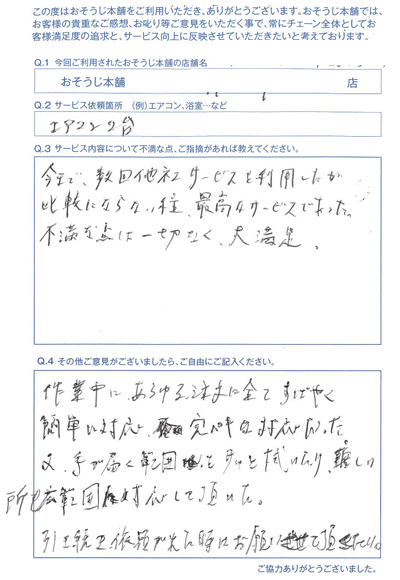 この度はおそうじ本舗をご利用いただき、ありがとうございます。おそうじ本舗では、
お客様の貴重なご感想、お叱り等ご意見をいただく事で、常にチェーン全体としてお
客様満足度の追求と、サービス向上に反映させていただきたいと考えております。
Q.1 今回ご利用されたおそうじ本舗の店舗名
おそうじ本舗 店
Q.2 サービス依頼箇所 (例)エアコン、浴室…など
エアコン2台
Q.3 サービス内容について不満な点、ご指摘があれば教えてください。
今まで、数回他社サービスを利用したが
比較にならない程、最高なサービスであった。
不満な点は一切なく、大満足。
Q.4 その他ご意見がございましたら、ご自由にご記入ください。
作業中に、あらゆる注文に全てすばやく
簡単に対応し、完ペキな対応だった
又、手が届く範囲を
所も 範囲 対応して頂いた。
引き続き依頼が 時にお願い させて頂きたい。
ご協力ありがとうございました。